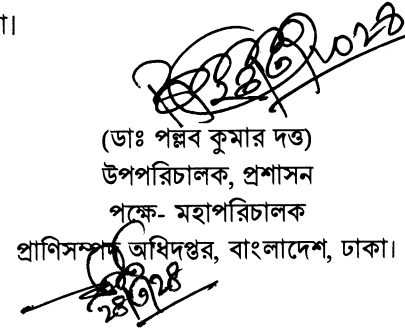 া।
(ডাঃ পল্লব কুমার দত্ত)
উপপরিচালক, প্রশাসন
পক্ষে- মহাপরিচালক
প্রাণিসম্পদ অধিদপ্তর, বাংলাদেশ, ঢাকা।